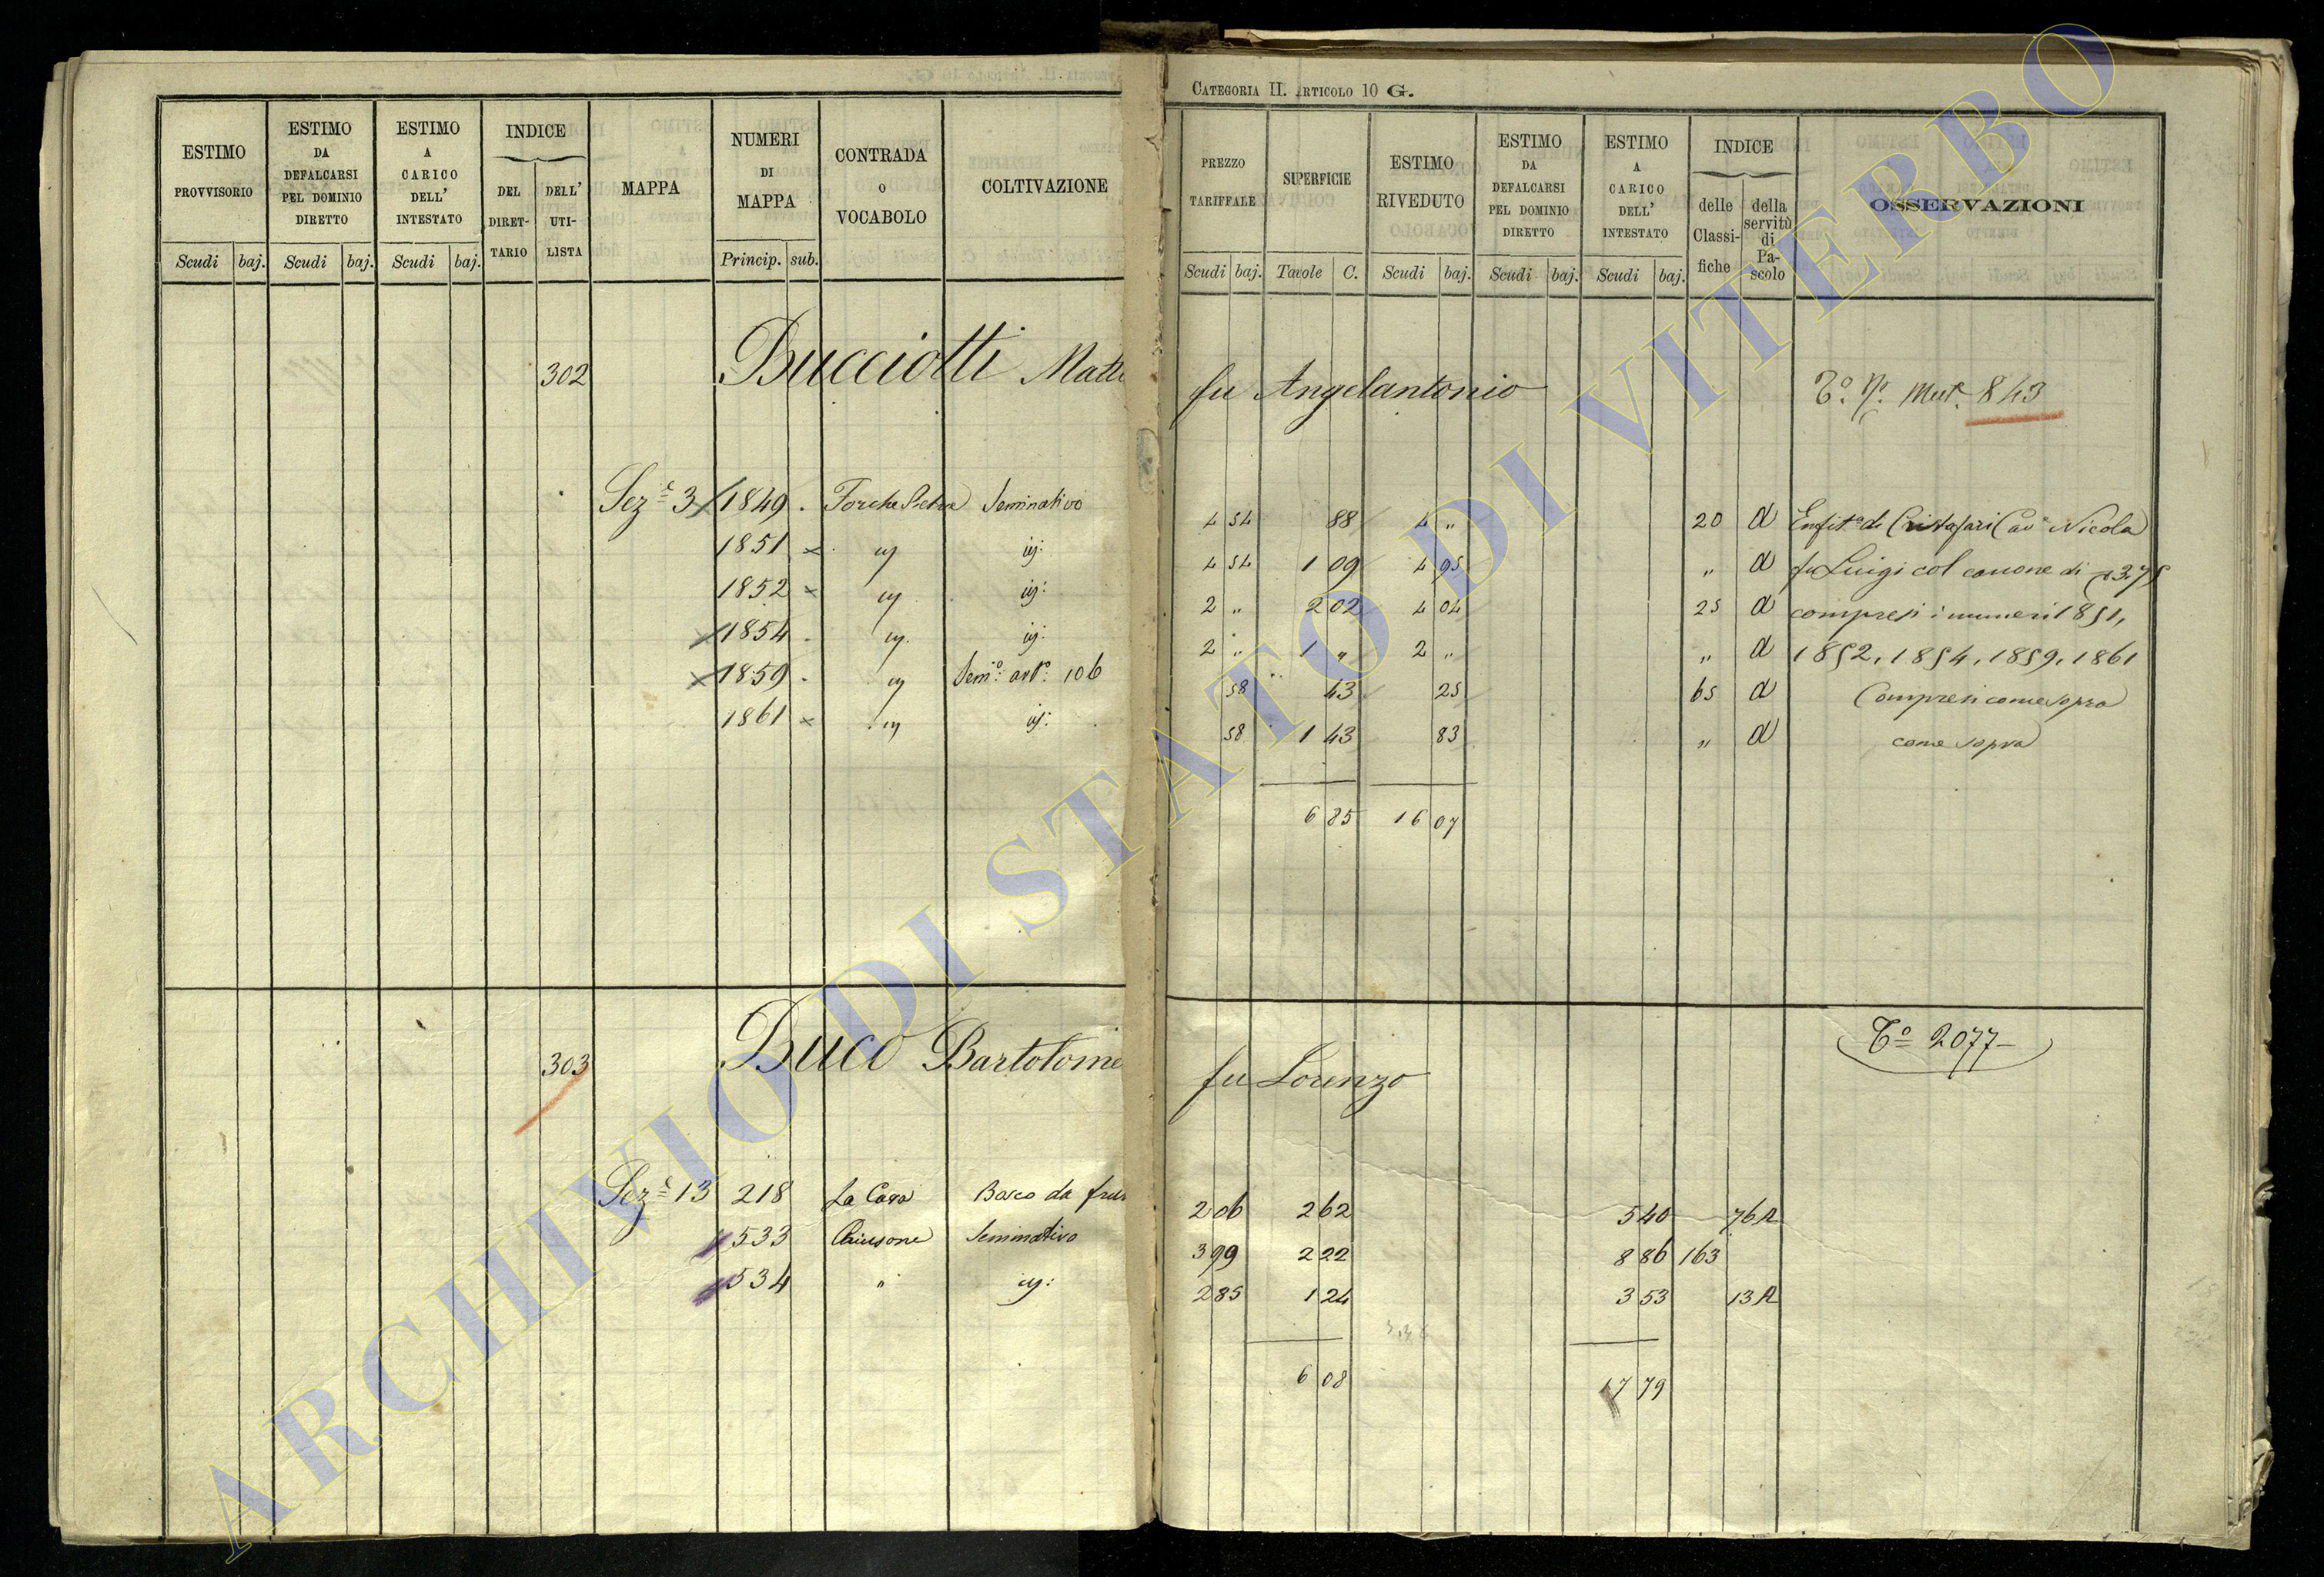 CATEGORIA II. ARTICOLO 10 G.
ESTIMO PROVVISORIO
ESTIMO DA DEFALCARSI PEL DOMINIO DIRETTO
ESTIMO A CARICO DELL' INTESTATO
INDICE
DEL DIRET- TARIO
DELL' UTI- LISTA
MAPPA
NUMERI DI MAPPA
CONTRADA O VOCABOLO
COLTIVAZIONE
PREZZO TARIFFALE
SUPERFICIE
ESTIMO RIVEDUTO
ESTIMO DA DEFALCARSI PEL DOMINIO DIRETTO
ESTIMO A CARICO DELL' INTESTATO
INDICE
delle Classi- fiche
della servitù di Pa- scolo
OSSERVAZIONI
Scudi baj. Scudi baj. Scudi baj. Princip. sub.
Scudi baj. Tavole C. Scudi baj. Scudi baj. Scudi baj.
302 Bucciotti Matt fu Angelantonio Mut. 843
Sez.e 3 1849 Forche Pietra Seminativo 4 54 88 4 „ 20 a Enfit. di Cristofari Cav. Nicola
1851 × „ ij: 4 54 1 09 4 95 „ a fu Luigi col canone di 3.75
1852 × „ ij: 2 „ 2 02 4 04 25 a compresi i numeri 1851,
1854 „ ij: 2 „ 1 „ 2 „ „ a 1852, 1854, 1859, 1861
1859 „ Sem.o art.o 106 58 43 25 65 a Compresi come sopra
1861 × „ ij: 58 1 43 83 „ a come sopra
6 85 16 07
303 Buco Bartolome fu Lorenzo T.o 2077
Sez.e 13 218 La Casa Bosco da frut 2 06 2 62 5 40 76 A
533 Chiusone Seminativo 3 99 2 22 8 86 163
534 „ ij: 2 85 1 24 3 53 13 A
6 08 17 79
ARCHIVIO DI STATO DI VITERBO